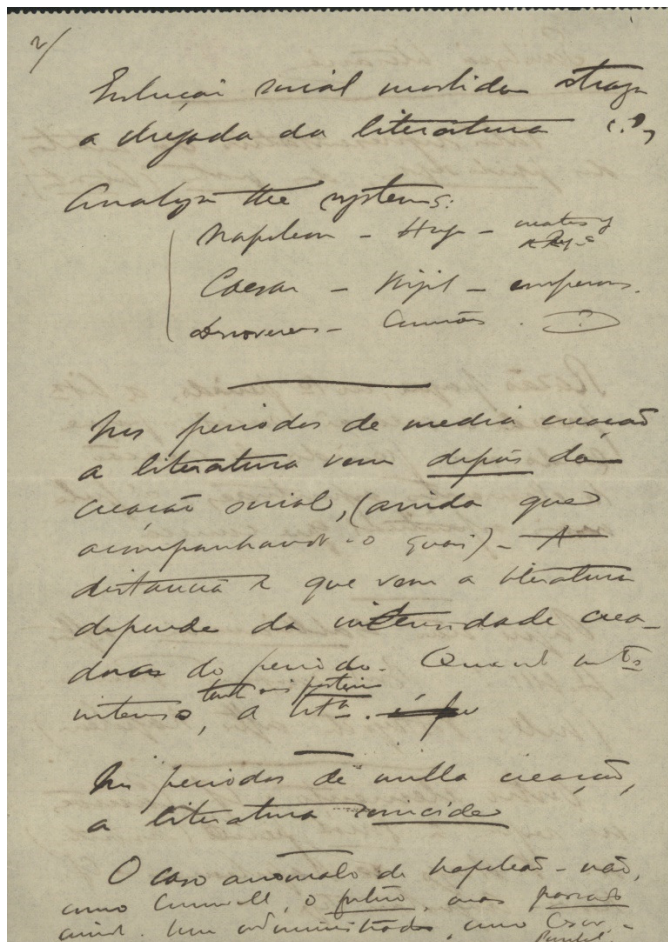 2/
Evolução social mostida
a chegada da literatura (?)
Analyse the systems:
Napoleon - Hugo - creator of
Caesar - Virgil - emperors.
- Camões. (?)
Nos periodos de media creação
a literatura vem depois da
creação social, (ainda que
acompanhando-o quasi) - A
distancia a que vem a literatura
depende da intensidade crea-
dora do periodo. Quanto mais
tanto posterior
intenso, a litª.
Nos periodos de nulla creação,
a literatura coincide
O caso anomalo de Napoleão - não,
como Cromwell, o futuro, mas passado
ainda. Um administrador, como Cesar -